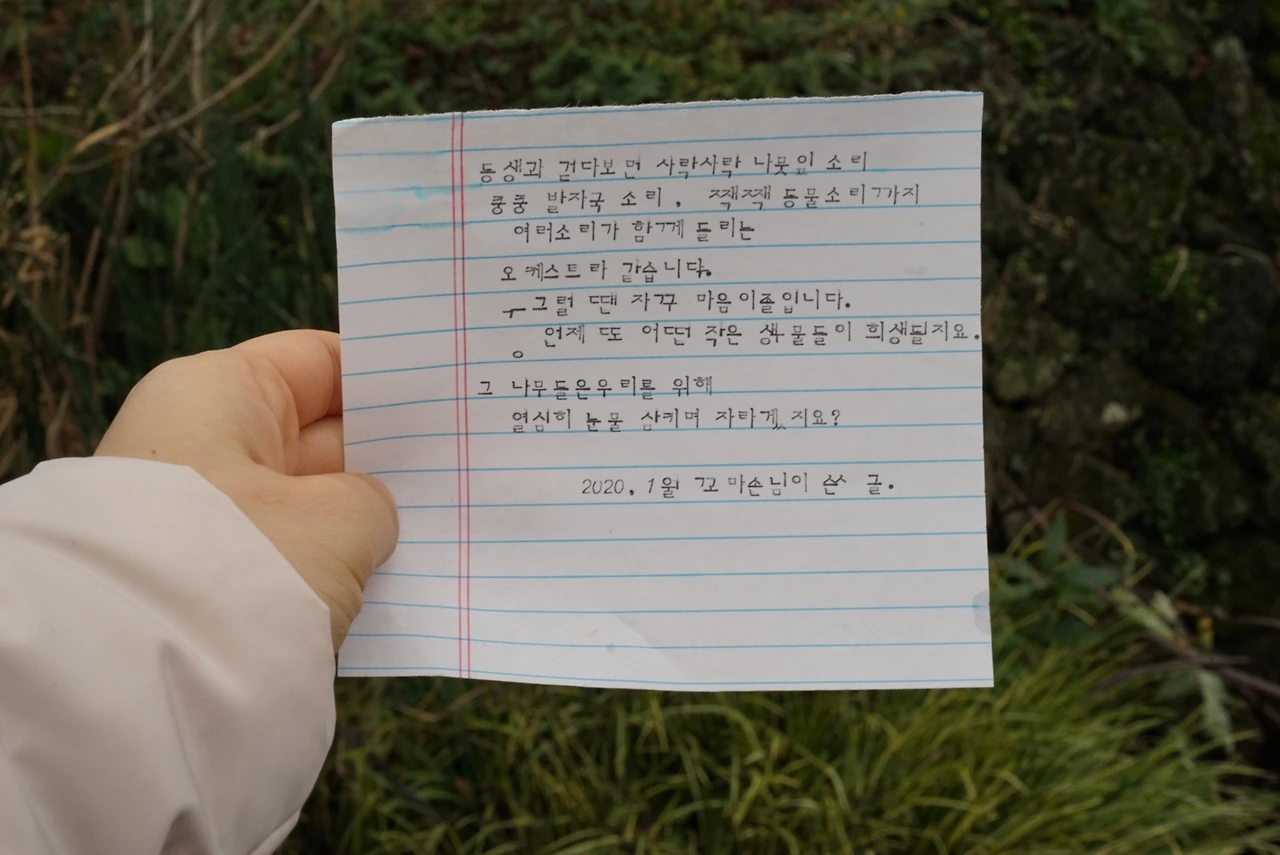 동생과 걷다보면 사락사락 나뭇잎 소리
쿵쿵 발자국 소리, 짹짹 동물소리까지
여러소리가 함께 들리는
오케스트라 같습니다.
그럴 땐 자꾸 마음이졸입니다.
언제 또 어떤 작은 생물들이 희생될지요.
그 나무들은우리를 위해
열심히 눈물 삼키며 자라겠지요?
2020. 1월 꼬마손님이 쓴 글.